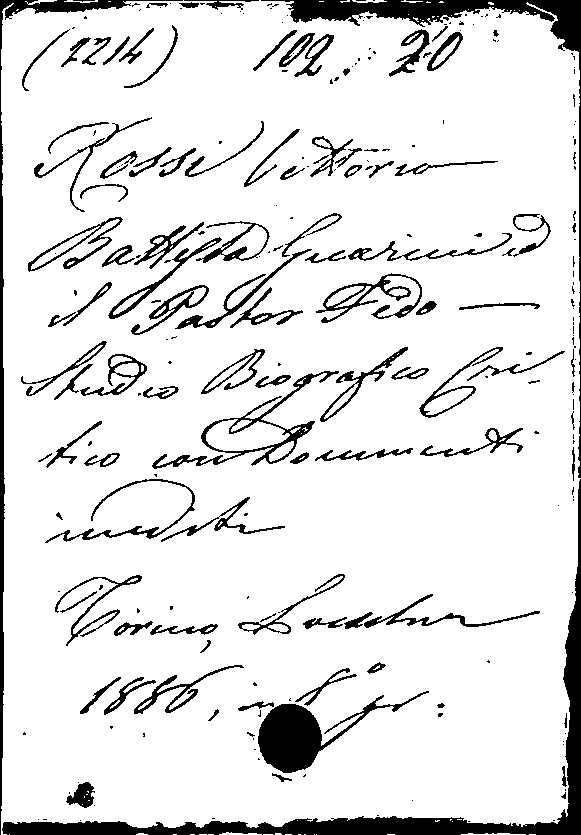 (2214) 102. 20
Rossi Vittorio
Battista Guarini ed
il Pastor Fido —
Studio Biografico Cri-
tico con Documenti
inediti
Torino, Loescher
1886, in 8º gr: